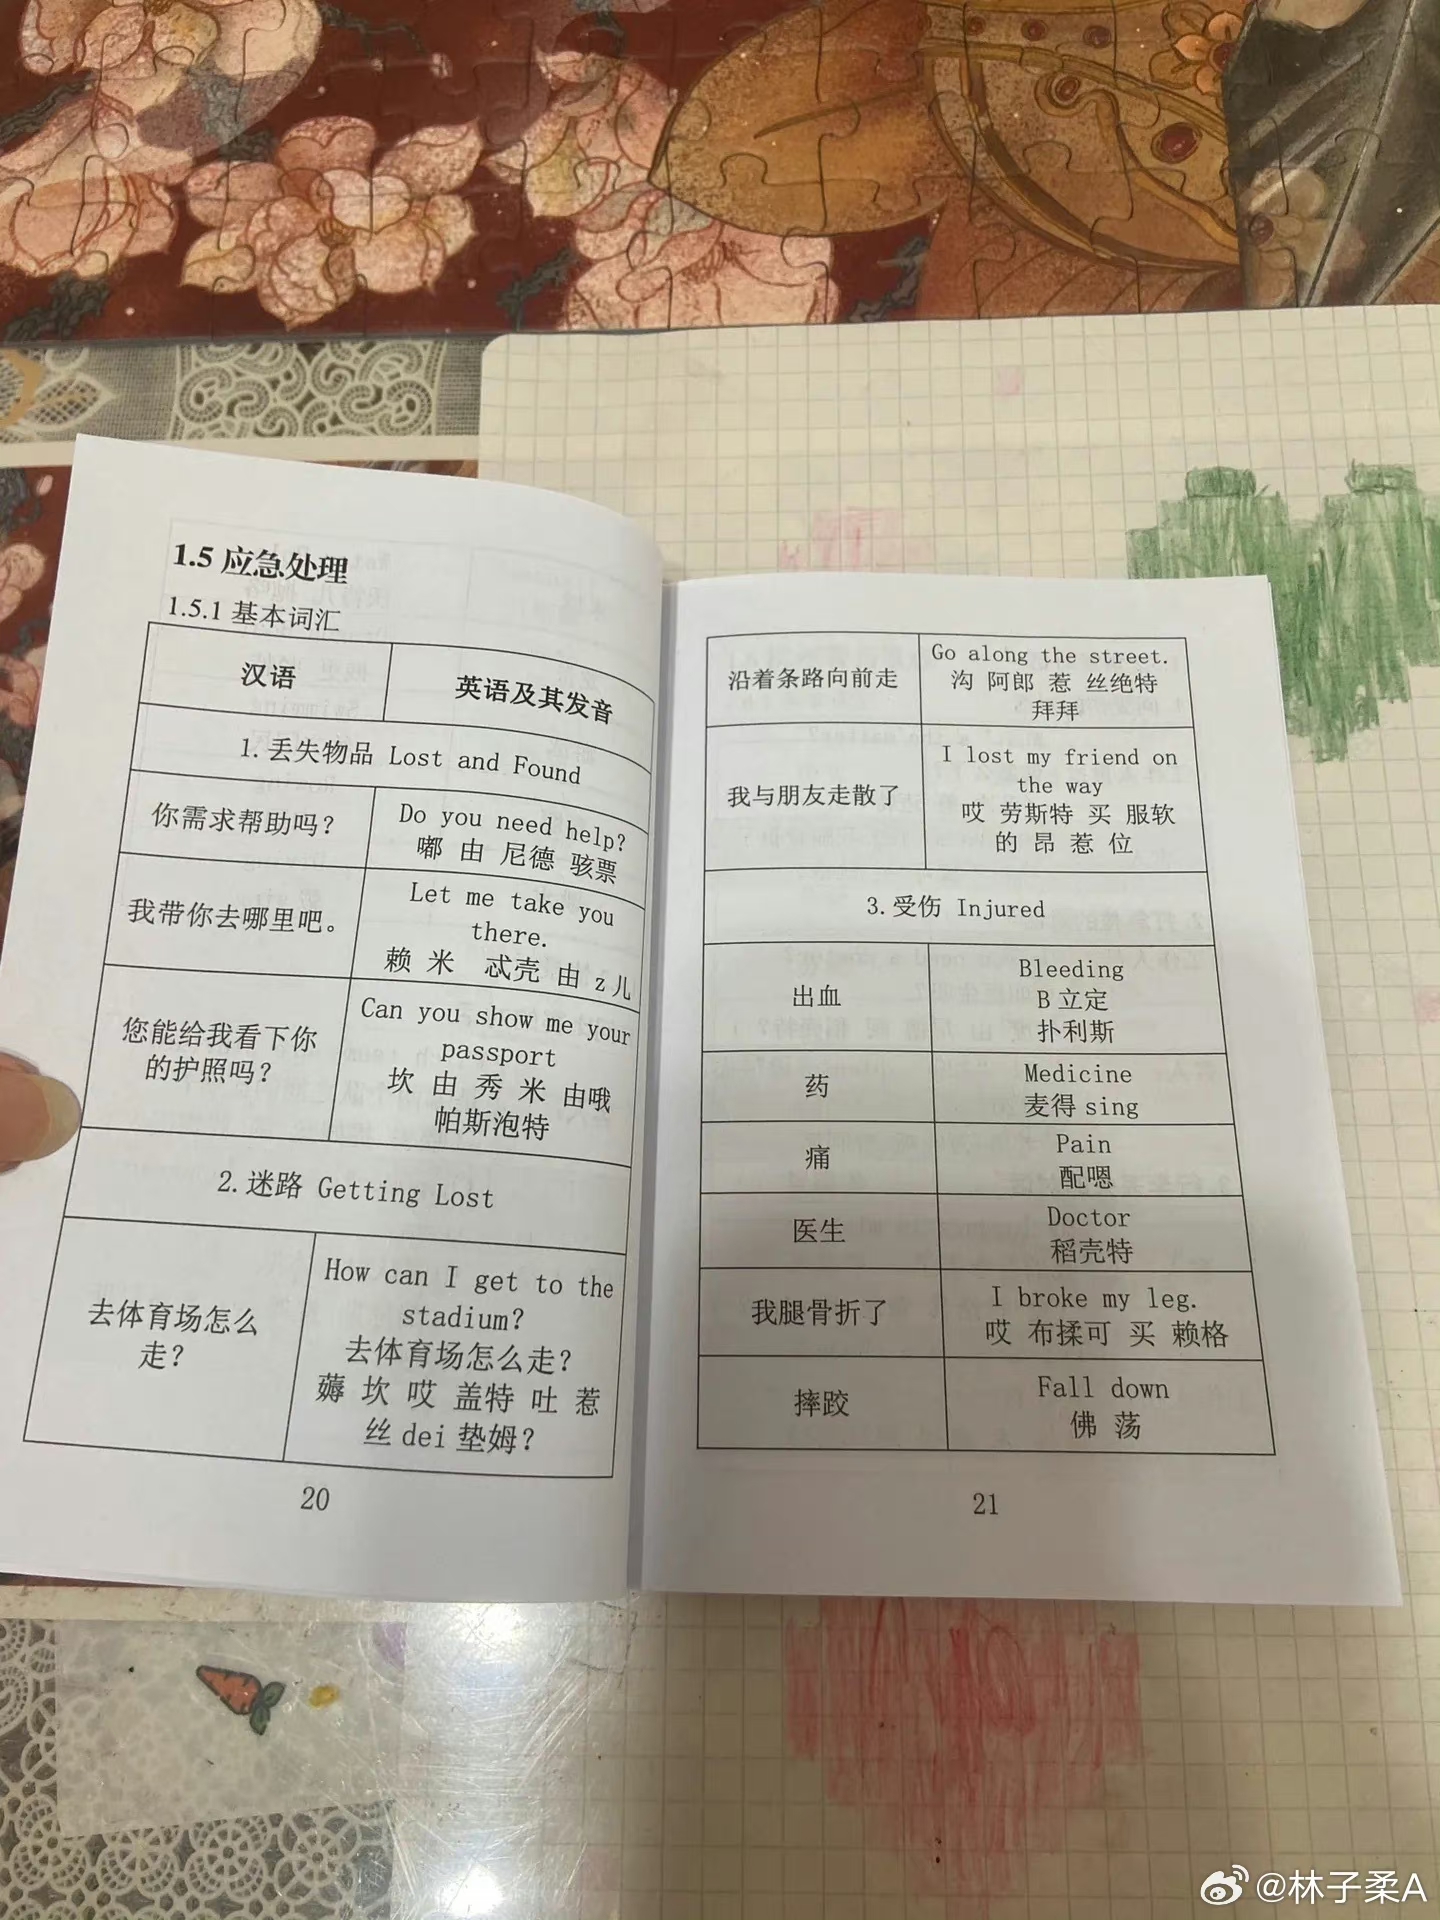 1.5 应急处理
1.5.1 基本词汇
汉语
英语及其发音
1. 丢失物品 Lost and Found
你需求帮助吗？
Do you need help?
嘟 由 尼德 骇票
我带你去哪里吧。
Let me take you
there.
赖 米 忒壳 由 z儿
您能给我看下你
的护照吗？
Can you show me your
passport
坎 由 秀 米 由哦
帕斯泡特
2.迷路 Getting Lost
去体育场怎么
走？
How can I get to the
stadium?
去体育场怎么走？
薅 坎 哎 盖特 吐 惹
丝 dei 垫姆？
20
沿着条路向前走
Go along the street.
沟 阿郎 惹 丝绝特
拜拜
我与朋友走散了
I lost my friend on
the way
哎 劳斯特 买 服软
的 昂 惹 位
3.受伤 Injured
出血
Bleeding
B立定
扑利斯
药
Medicine
麦得sing
痛
Pain
配嗯
医生
Doctor
稻壳特
我腿骨折了
I broke my leg.
哎 布揉可 买 赖格
摔跤
Fall down
佛 荡
21
@林子柔A